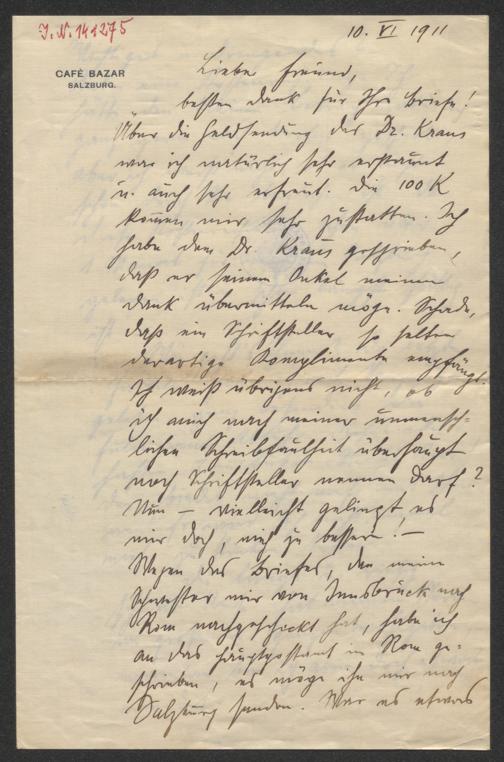 J. N. 141275
10. VI 1911
CAFÉ BAZAR
SALZBURG.
Lieber Freund,
besten Dank für Ihre Briefe!
Über die Geldsendung des Dr. Kraus
war ich natürlich sehr erstaunt
u. auch sehr erfreut. Die 100 K
kommen mir sehr zustatten. Ich
habe dem Dr. Kraus geschrieben,
daß er seinem Onkel meinen
Dank übermitteln möge. Schade,
daß ein Schriftsteller so selten
derartige Komplimente empfängt.
Ich weiß übrigens nicht, ob
ich mich nach meiner unmensch-
lichen Schreibfaulheit überhaupt
noch Schriftsteller nennen darf?
Nun – vielleicht gelingt es
mir doch, mich zu bessern! –
Wegen des Briefes, den meine
Schwester mir von Innsbruck nach
Rom nachgeschickt hat, habe ich
an das Hauptpostamt in Rom ge-
schrieben, es möge ihn mir nach
Salzburg senden. War es etwas